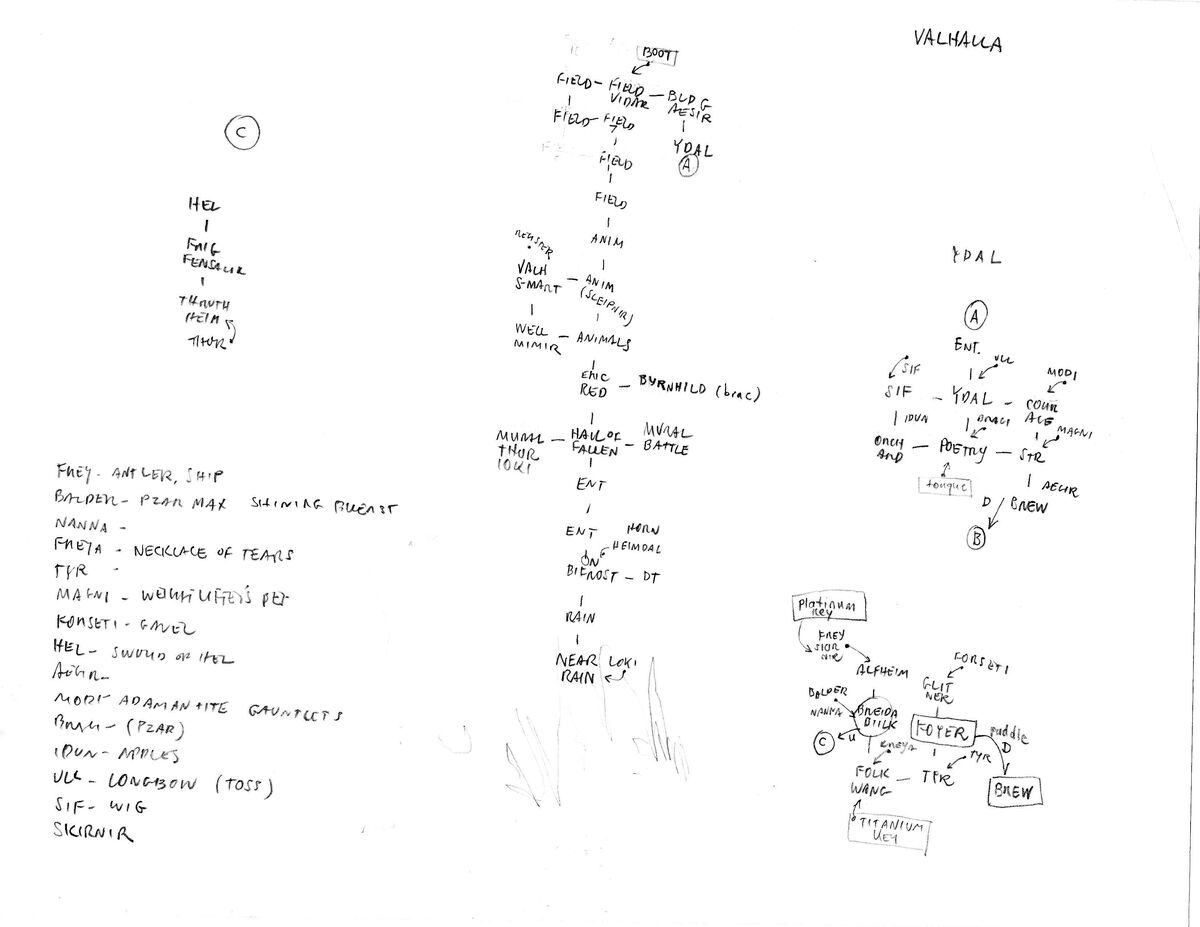 VALHALLA
BOOT
FIELD - FIELD VIDAR - BLDG AESIR
FIELD - FIELD
YDAL
A
FIELD
FIELD
ANIM
REGISTER
VALH S-MART - ANIM (SLEIPNIR)
WELL MIMIR - ANIMALS
ERIC RED - BYRNHILD (brac)
MURAL THOR LOKI - HALL OF FALLEN - MURAL BATTLE
ENT
ENT
HORN
HEIMDAL
BIFROST - DT
RAIN
NEAR RAIN
LOKI
C
HEL
FRIG
FENSALIR
THRUTH
HEIM
THOR
FREY - ANTLER, SHIP
BALDER - PZAR MAX SHINING BREAST
NANNA -
FREYA - NECKLACE OF TEARS
TYR -
MAGNI - WEIGHTLIFTER'S BELT
FORSETI - GAVEL
HEL - SWORD OF HEL
AEGIR -
MODI - ADAMANTITE GAUNTLETS
BRAGI - (PZAR)
IDUN - APPLES
ULL - LONGBOW (TOSS)
SIF - WIG
SKIRNIR
YDAL
A
ENT.
ULL
SIF
MODI
SIF - YDAL - COUR AGE
IDUN
BRAGI
MAGNI
ORCH ARD - POETRY - STR
tongue
AEGIR
D
BREW
B
platinum key
FREY
SKIR NIR
ALFHEIM
FORSETI
GLIT NER
BALDER
NANNA
BREIDA BLIK
FOYER
puddle
D
C
U
FREYA
TYR
FOLK WANG - TYR
BREW
TITANIUM KEY